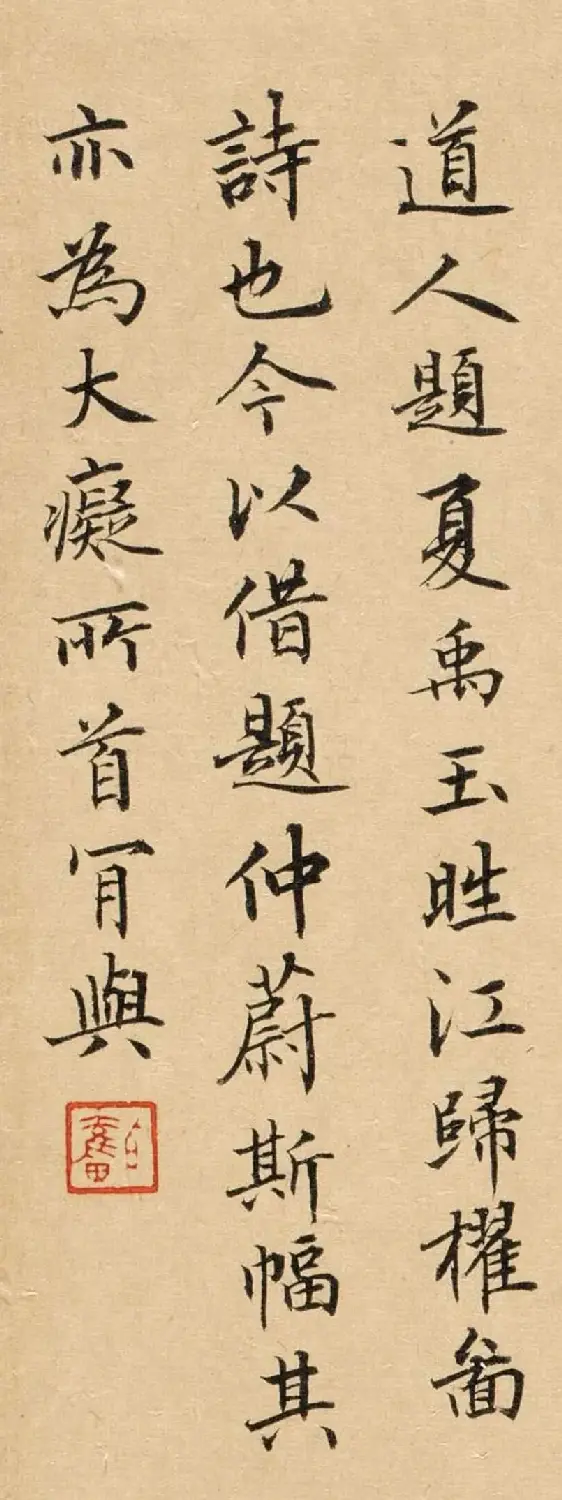 道人題夏禹玉晴江歸櫂啚
詩也今以借題仲蔚斯幅其
亦為大癡所首肎與